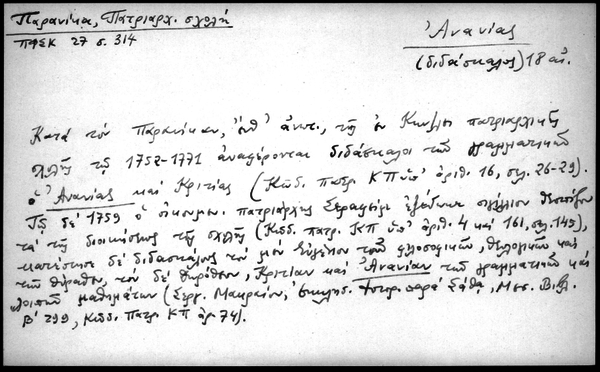 Παρανίκα, Πατριαρχ. σχολή
ΠΦΣΚ 27 σ. 314
Ἀνανίας
(διδάσκαλος) 18 αἰ.
Κατά τόν Παρανίκαν, ἔνθ' ἀνωτ., τῆς ἐν Κων]πόλει πατριαρχικῆς
σχολῆς τῷ 1752-1771 ἀναφέρονται διδάσκαλοι τῶν γραμματικῶν
ὁ Ἀνανίας καί Κριτίας (Κῶδ. πατρ. ΚΠ ὑπ' ἀριθ. 16, σελ. 26-29).
Τῷ δέ 1759 ὁ οἰκουμεν. πατριάρχης Σεραφείμ ἐξέδωκε σιγίλλιον
τά τῆς διοικήσεως τῆς σχολῆς (Κῶδ. πατρ. ΚΠ ὑπ' ἀριθ. 4 καί 161, σελ. 145),
κατέστησε δέ διδασκάλους τόν μέν Εὐγένιον τῶν φιλοσοφικῶν, θεολογικῶν καί
τῶν θύραθεν, τόν δέ Κριτίαν καί Ἀνανίαν τῶν γραμματικῶν καί
λοιπῶν μαθημάτων (Σεργ. Μακραίου, ἐκκλησ. ἱστορ. παρά Σάθα, Μεσ. Βιβλ.
Β' 299, Κῶδ. πατρ. ΚΠ ἀρ. 74).